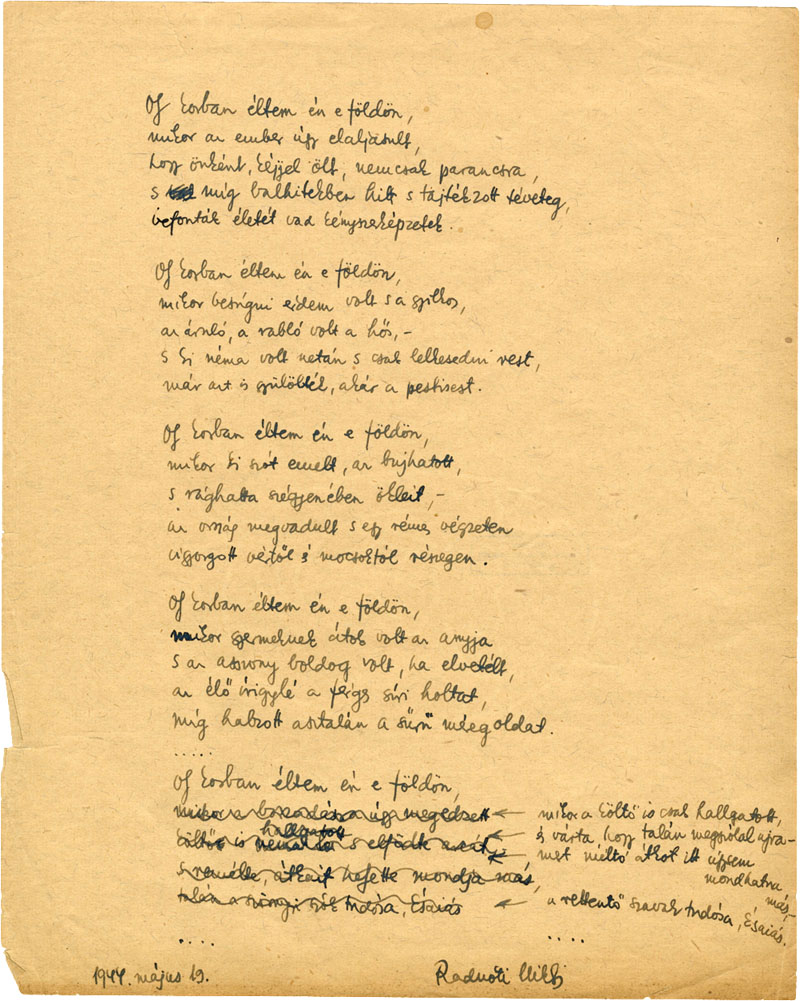 Oly korban éltem én e földön,
mikor az ember úgy elaljasult,
hogy önként, kéjjel ölt, nemcsak parancsra,
s míg balhitekben hitt s tajtékzott téveteg,
befonták életét vad kényszerképzetek.
Oly korban éltem én e földön,
mikor besúgni érdem volt s a gyilkos,
az áruló, a rabló volt a hős, –
s ki néma volt netán s csak lelkesedni rest,
már azt is gyűlölték, akár a pestisest.
Oly korban éltem én e földön,
mikor ki szót emelt, az bujhatott,
s rághatta szégyenében ökleit, –
az ország megvadult s egy rémes végzeten
vigyorgott vértől s mocsoktól részegen.
Oly korban éltem én e földön,
mikor gyermeknek átok volt az anyja
s az asszony boldog volt, ha elvetélt,
az élő írigylé a férges síri holtat,
míg habzott asztalán a sűrű méregoldat.
.....
Oly korban éltem én e földön,
mikor a úgy megedzett
hallgatott
költő is s elfödte
s remélte, átkait helyette mondja más,
talán a szók tudósa, Ésaiás
....
mikor a költő is csak hallgatott,
és várta, hogy talán megszólal ujra –
mert méltó átkot itt úgysem
mondhatna
más, –
a rettentő szavak tudósa, Ésaiás.
....
1944. május 19.
Radnóti Miklós